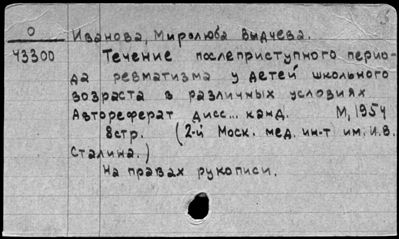 О
43300
Иванова, Миролюба Выдчева.
Течение послеприступного перио-
да ревматизма у детей школьного
возраста в различных условиях
Автореферат дисс... канд. М, 1954
8стр. (2-й Моск. мед. ин-т им. И.В.
Сталина.)
На правах рукописи.